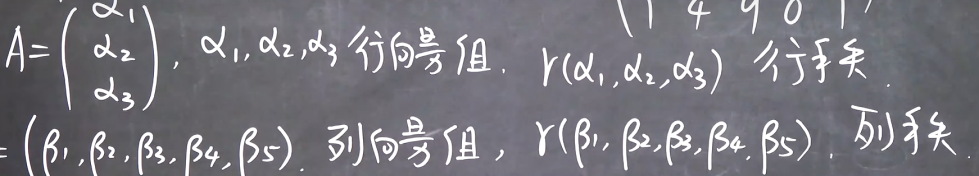 1 4 9 0 1
A=(α₁ α₂ α₃), α₁,α₂,α₃ 行向量组. r(α₁,α₂,α₃) 行秩.
=(β₁,β₂,β₃,β₄,β₅). 列向量组, r(β₁,β₂,β₃,β₄,β₅). 列秩.